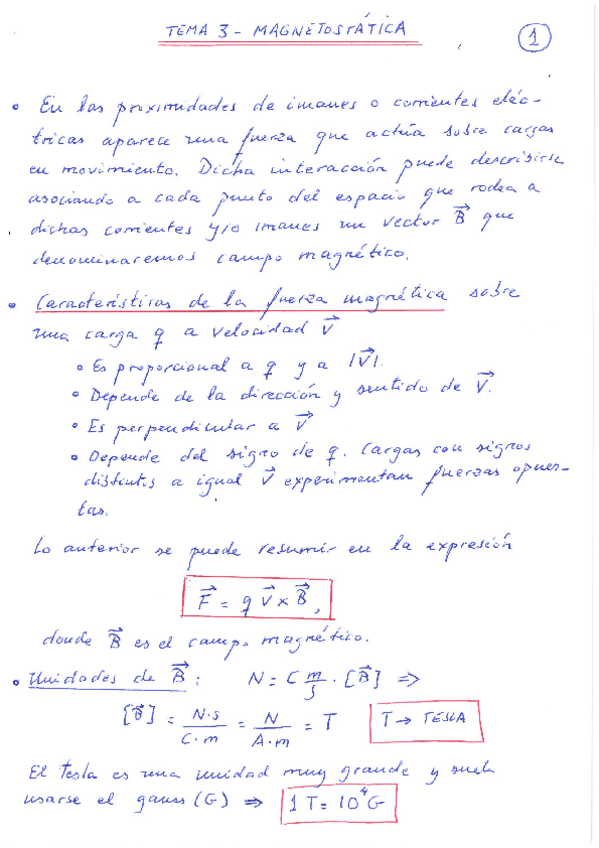 TEMA 3 - MAGNETOSTÁTICA
1
• En las proximidades de imanes o corrientes eléc-
tricas aparece una fuerza que actúa sobre cargas
en movimiento. Dicha interacción puede describirse
asociando a cada punto del espacio que rodea a
dichas corrientes y/o imanes un vector B⃗ que
denominaremos campo magnético.
• Características de la fuerza magnética sobre
una carga q a velocidad v⃗
• Es proporcional a q y a |v⃗|.
• Depende de la dirección y sentido de v⃗.
• Es perpendicular a v⃗
• Depende del signo de q. Cargas con signos
distintos a igual v⃗ experimentan fuerzas opues-
tas.
Lo anterior se puede resumir en la expresión
F⃗ = q v⃗ × B⃗,
donde B⃗ es el campo magnético.
• Unidades de B⃗: N = C m/s · [B⃗] ⇒
[B⃗] = N·s/C·m = N/A·m = T T → TESLA
El tesla es una unidad muy grande y suele
usarse el gauss (G) ⇒ 1 T = 10⁴ G